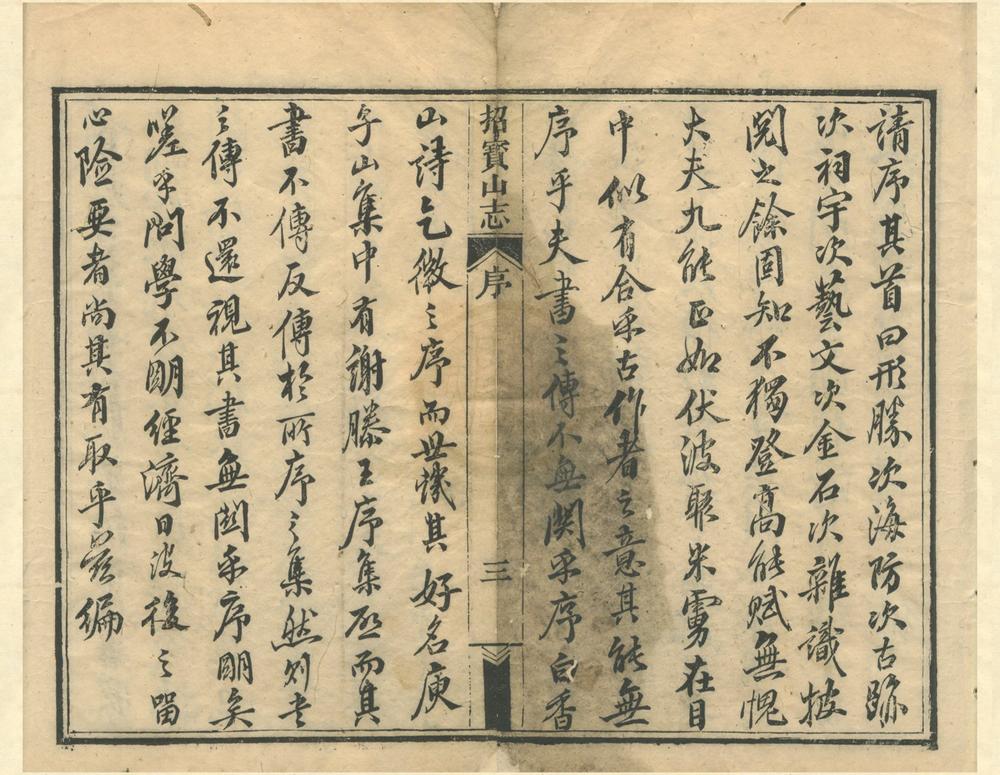 請序其首曰形勝次海防次古跡
次祠宇次藝文次金石次雜識披
閱之餘固知不獨登高能賦無愧
大夫九能正如伏波聚米虜在目
中似有合乎古作者之意其能無
序乎夫書之傳不無関乎序白香
招寶山志 序 三
山詩乞微之序而世譏其好名庾
子山集中有謝滕王序集啟而其
書不傳反傳於所序之集然則書
之傳不還視其書無関乎序明矣
嗟乎問學不明經濟日後之留
心險要者尚其有取乎編